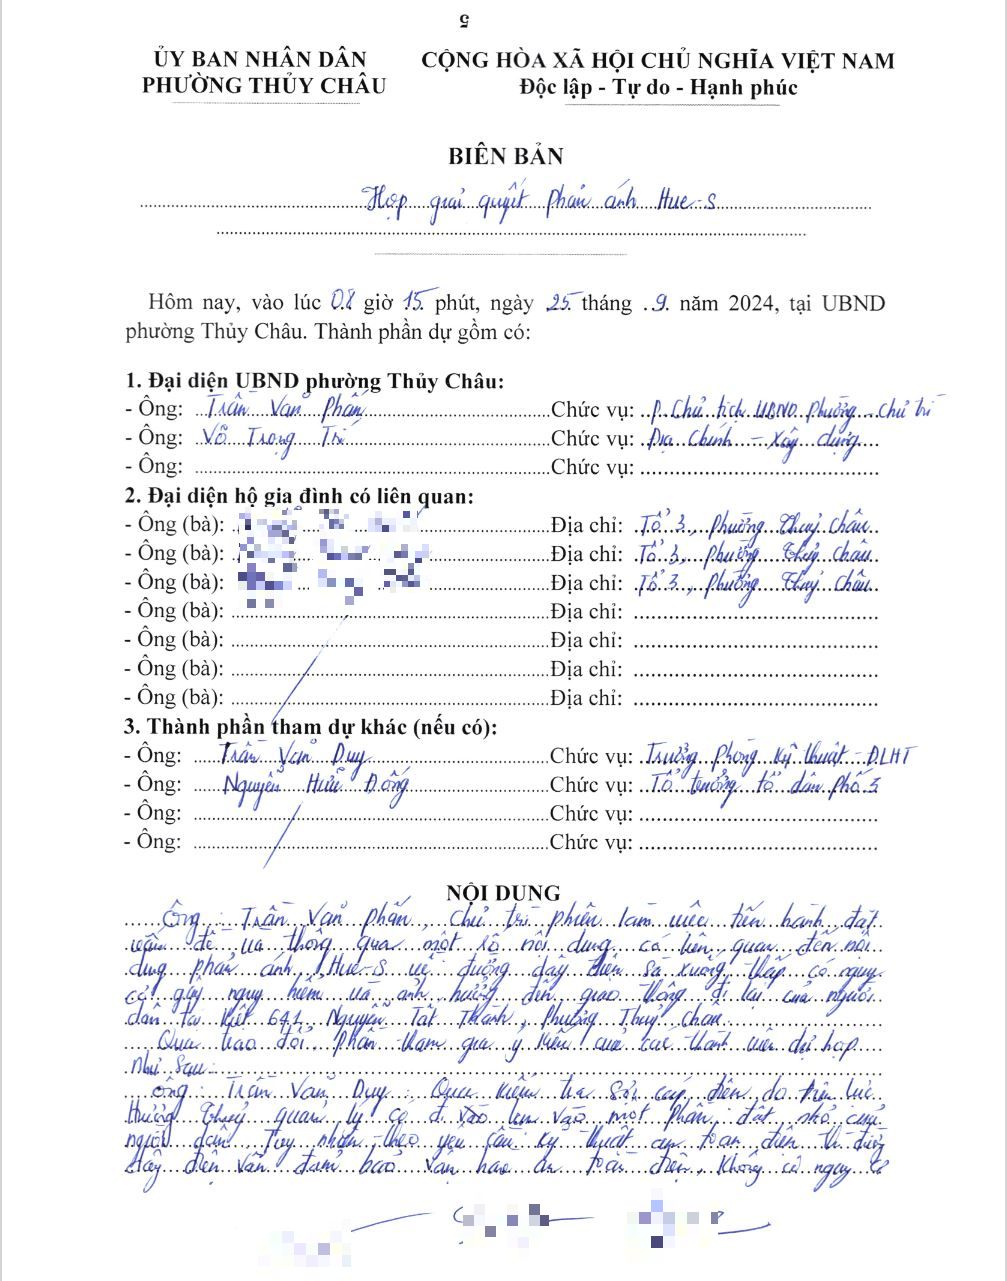 5
ỦY BAN NHÂN DÂN
PHƯỜNG THỦY CHÂU
CỘNG HÒA XÃ HỘI CHỦ NGHĨA VIỆT NAM
Độc lập - Tự do - Hạnh phúc
BIÊN BẢN
Họp giải quyết phản ánh Hue-S
Hôm nay, vào lúc 08 giờ 15 phút, ngày 25 tháng 9 năm 2024, tại UBND
phường Thủy Châu. Thành phần dự gồm có:
1. Đại diện UBND phường Thủy Châu:
- Ông: Trần Văn Phấn Chức vụ: P. Chủ tịch UBND Phường - Chủ trì
- Ông: Võ Trọng Trí Chức vụ: Địa chính - Xây dựng
- Ông: Chức vụ:
2. Đại diện hộ gia đình có liên quan:
- Ông (bà): Địa chỉ: Tổ 3, Phường Thuỷ Châu
- Ông (bà): Địa chỉ: Tổ 3, Phường Thuỷ Châu
- Ông (bà): Địa chỉ: Tổ 3, Phường Thuỷ Châu
- Ông (bà): Địa chỉ:
- Ông (bà): Địa chỉ:
- Ông (bà): Địa chỉ:
- Ông (bà): Địa chỉ:
3. Thành phần tham dự khác (nếu có):
- Ông: Trần Văn Duy Chức vụ: Trưởng phòng Kỹ thuật - ĐLHT
- Ông: Nguyễn Hữu Đống Chức vụ: Tổ trưởng tổ dân phố 3
- Ông: Chức vụ:
- Ông: Chức vụ:
NỘI DUNG
Ông: Trần Văn Phấn, Chủ trì phiên làm việc tiến hành đặt
vấn đề và thông qua một số nội dung có liên quan đến nội
dung phản ánh Hue-S về đường dây điện sà xuống thấp có nguy
cơ gây nguy hiểm và ảnh hưởng đến giao thông đi lại của người
dân tại Kiệt 641 Nguyễn Tất Thành, Phường Thuỷ Châu
Qua trao đổi, phần tham gia ý kiến của các thành viên dự họp
như sau:
Ông: Trần Văn Duy: Qua kiểm tra dây điện do Điện lực
Hương Thuỷ quản lý có đi vào một phần đất nhỏ của
người dân, tuy nhiên theo yêu cầu kỹ thuật an toàn điện thì đường
dây điện vẫn đảm bảo an toàn điện, không có nguy cơ